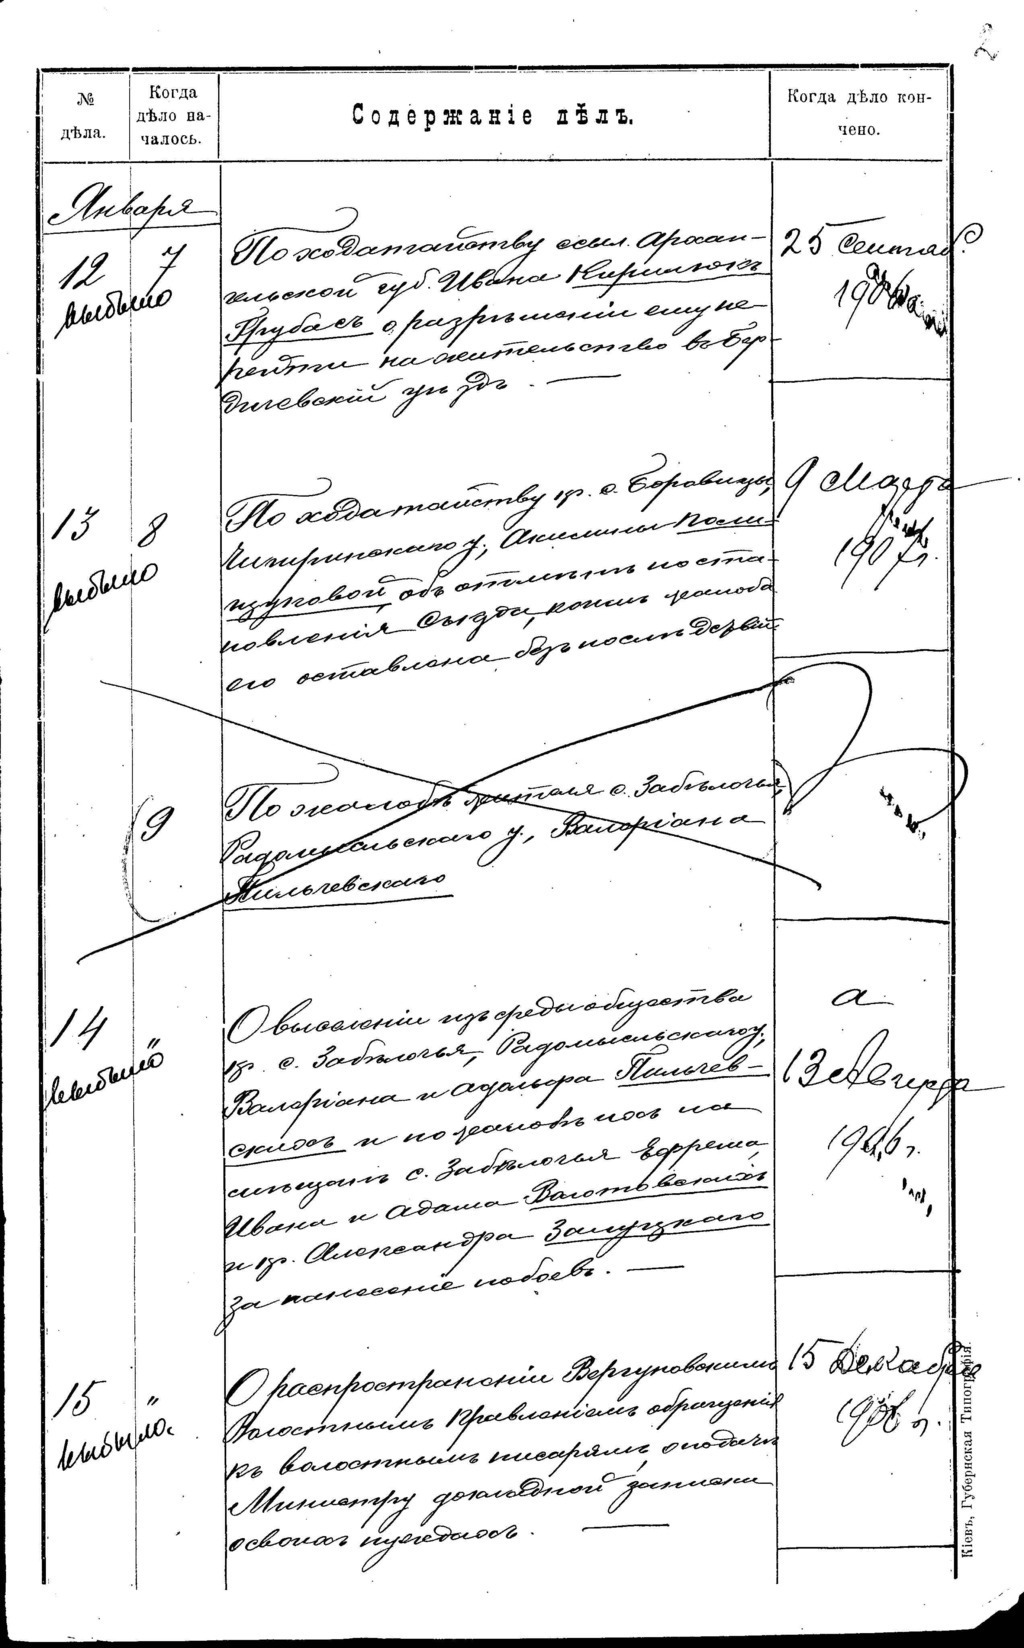 2
№ дѣла.
Когда дѣло началось.
Содержаніе дѣлъ.
Когда дѣло кончено.
Января
12 7
выбыло
По ходатайству ссыл. Архан-
гельской губ. Ивана Кириллова
Грубасъ о разрѣшеніи ему пе-
рейти на жительство въ Бер-
дичевскій уѣздъ. —
25 Сентяб.
1906
13 8
выбыло
По ходатайству кр. с. Боровицы,
Чигиринскаго у., Акилины Поли-
щуковой, объ отмѣнѣ поста-
новленія Съѣзда, коимъ жалоба
его оставлена безъ послѣдствій
9 Марта
1907 г.
9
По жалобѣ жителя с. Забѣлочья,
Радомысльскаго у., Валеріана
Пильчевскаго
14 "
выбыло
О выселеніи изъ среды общества
кр. с. Забѣлочья, Радомысльскаго у.,
Валеріана и Адольфа Пильчев-
скихъ и по жалобѣ ихъ на
мѣщанъ с. Забѣлочья Ефрема,
Ивана и Адама
и кр. Александра Залуцкаго
за нанесеніе побоевъ. —
13 Августа
1906 г.
15 "
выбыло.
О распространеніи Вергуновскимъ
Волостнымъ Правленіемъ обращенія
къ волостнымъ писарямъ, о подачѣ
Министру докладной записки
о своихъ нуждахъ. —
15 Декабря
1906 г.
Кіевъ, Губернская Типографія.